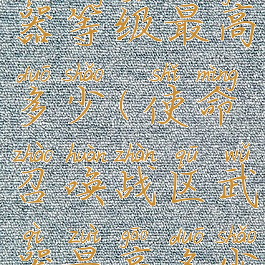 器等级最高
duō shǎo shǐ mìng
多少(使命
zhào huàn zhàn qū wǔ
召唤战区武
qì zuì gāo duō shǎo
器最高多少